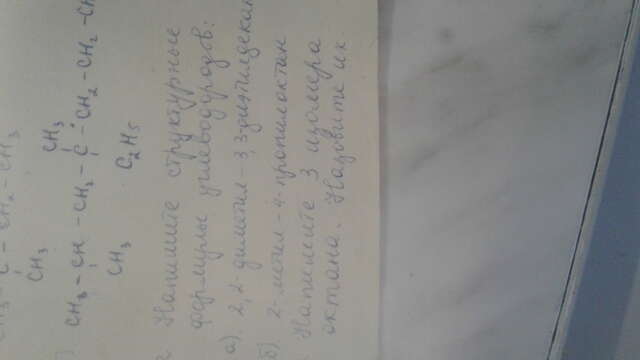 CH₃ - C - CH₂ - CH₃
CH₃
CH₃
CH₃ - CH - CH₂ - C - CH₂ - CH₂ - CH
CH₃ C₂H₅
Напишите структурные
формулы углеводородов:
а). 2,2-диметил-3,3-диэтилдекан
б) 2-метил-4-пропилоктан
Напишите 3 изомера
октана. Назовите их